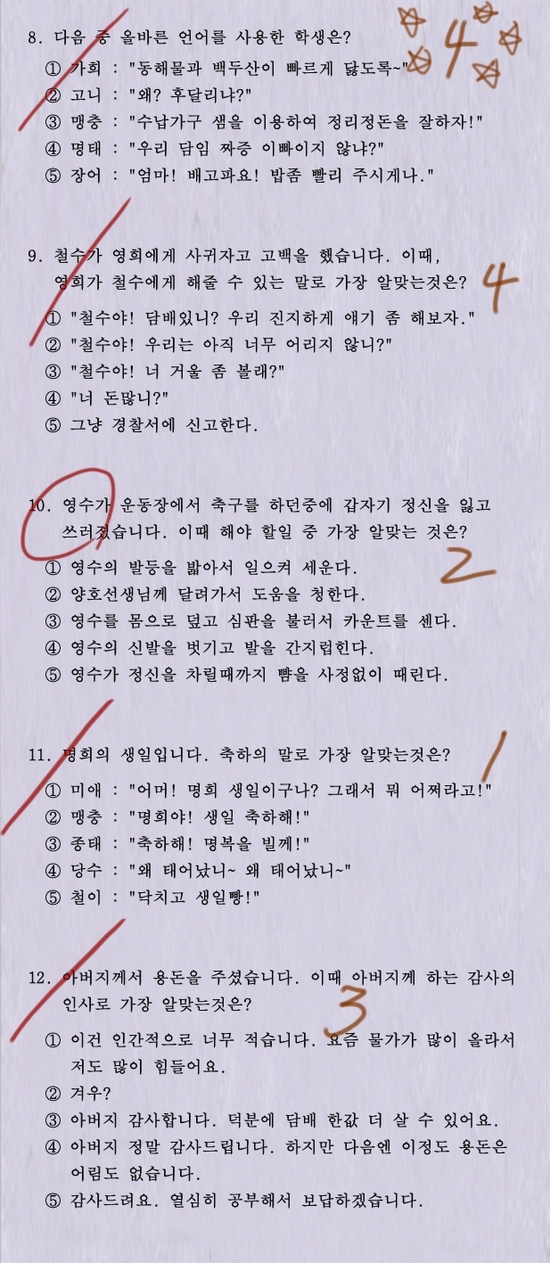 8. 다음 중 올바른 언어를 사용한 학생은? 4
① 가희 : "동해물과 백두산이 빠르게 닳도록~"
② 고니 : "왜? 후달리냐?"
③ 맹충 : "수납가구 샘을 이용하여 정리정돈을 잘하자!"
④ 명태 : "우리 담임 짜증 이빠이지 않냐?"
⑤ 장어 : "엄마! 배고파요! 밥좀 빨리 주시게나."
9. 철수가 영희에게 사귀자고 고백을 했습니다. 이때,
영희가 철수에게 해줄 수 있는 말로 가장 알맞는것은? 4
① "철수야! 담배있니? 우리 진지하게 얘기 좀 해보자."
② "철수야! 우리는 아직 너무 어리지 않니?"
③ "철수야! 너 거울 좀 볼래?"
④ "너 돈많니?"
⑤ 그냥 경찰서에 신고한다.
10. 영수가 운동장에서 축구를 하던중에 갑자기 정신을 잃고
쓰러졌습니다. 이때 해야 할일 중 가장 알맞는 것은?
2
① 영수의 발등을 밟아서 일으켜 세운다.
② 양호선생님께 달려가서 도움을 청한다.
③ 영수를 몸으로 덮고 심판을 불러서 카운트를 센다.
④ 영수의 신발을 벗기고 발을 간지럽힌다.
⑤ 영수가 정신을 차릴때까지 뺨을 사정없이 때린다.
11. 명희의 생일입니다. 축하의 말로 가장 알맞는것은? 1
① 미애 : "어머! 명희 생일이구나? 그래서 뭐 어쩌라고!"
② 맹충 : "명희야! 생일 축하해!"
③ 종태 : "축하해! 명복을 빌께!"
④ 당수 : "왜 태어났니~ 왜 태어났니~"
⑤ 철이 : "닥치고 생일빵!"
12. 아버지께서 용돈을 주셨습니다. 이때 아버지께 하는 감사의
인사로 가장 알맞는것은? 3
① 이건 인간적으로 너무 적습니다. 요즘 물가가 많이 올라서
저도 많이 힘들어요.
② 겨우?
③ 아버지 감사합니다. 덕분에 담배 한값 더 살 수 있어요.
④ 아버지 정말 감사드립니다. 하지만 다음엔 이정도 용돈은
어림도 없습니다.
⑤ 감사드려요. 열심히 공부해서 보답하겠습니다.